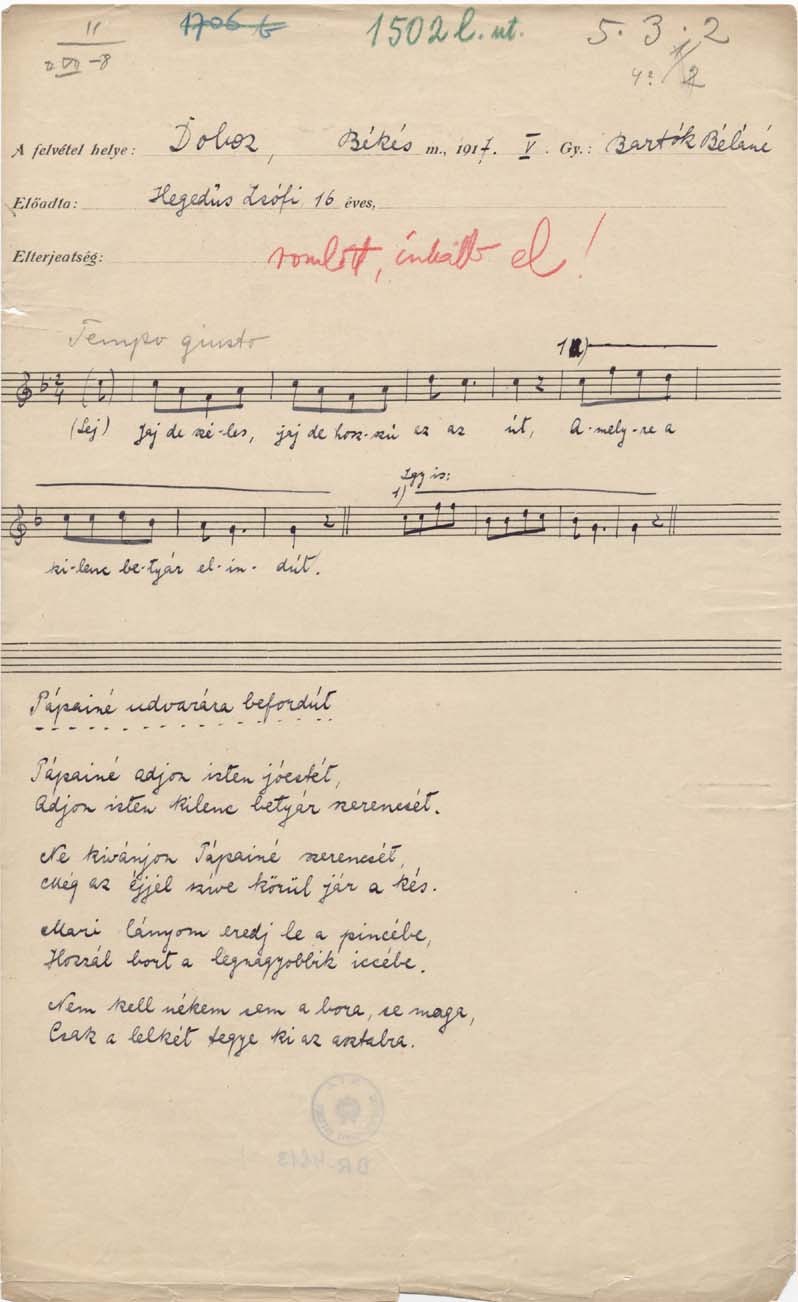 11
1706 b
1502 l. ut.
5. 3. 2
VII -8
2
A felvétel helye: Doboz, Békés m., 1917. V. Gy.: Bartók Béláné
Előadta: Hegedűs Zsófi 16 éves,
Elterjedtség:
romlott, inkább el!
Tempo giusto
1)
2/4
(Lej) Jaj de szé-les, jaj de hosz-szú az az út, A-mely-re a
Igy is:
1)
ki-lenc be-tyár el-in-dút.
Pápainé udvarára befordút
Pápainé adjon isten jóestét,
Adjon isten kilenc betyár szerencsét.
Ne kivánjon Pápainé szerencsét,
Még az éjjel szíve körül jár a kés.
Mari lányom eredj le a pincébe,
Hozzál bort a legnagyobbik iccébe.
Nem kell nékem sem a bora, se maga,
Csak a lelkét tegye ki az asztalra.